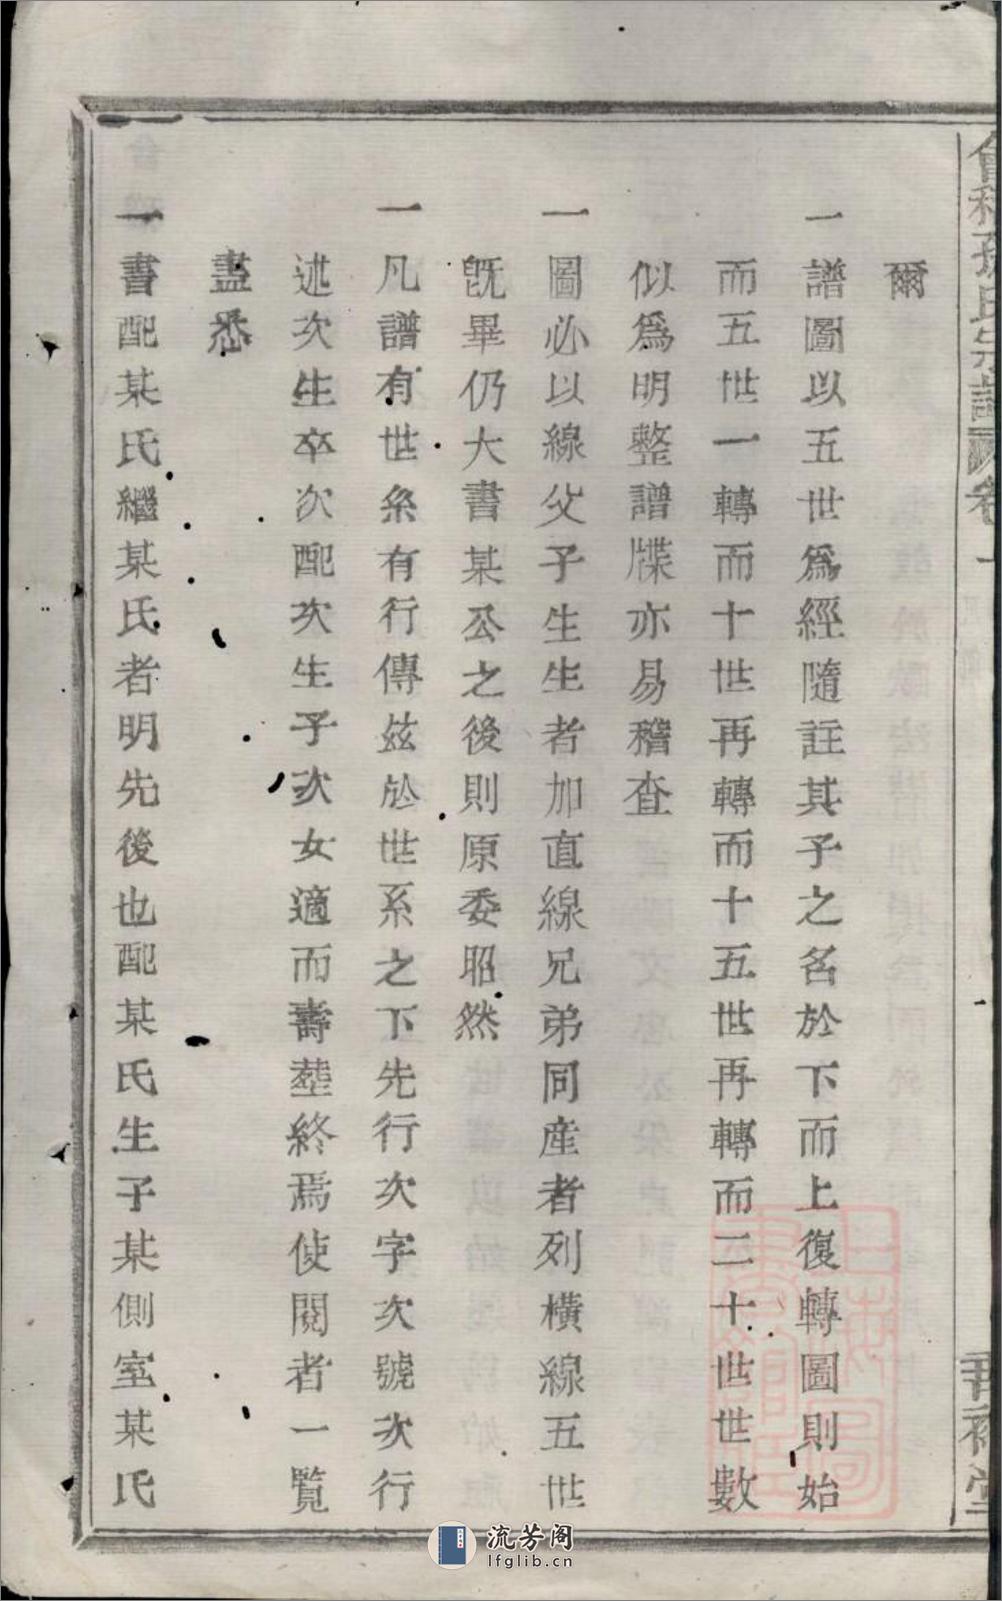 爾
一譜圖以五世爲經隨註其子之名於下而上復轉圖則始
而五世一轉而十世再轉而十五世再轉而二十世世數
似爲明整譜牒亦易稽查
一圖必以線父子生生者加直線兄弟同産者列橫線五世
旣畢仍大書某公之後則原委昭然
一凡譜有世系有行傳玆於世系之下先行次字次號次行
述次生卒次配次生子次女適而壽塟終焉使閱者一覽
盡悉
一書配某氏繼某氏者明先後也配某氏生子某側室某氏
會稽孫氏宗譜 卷一
一
流芳阁
lfglib.cn